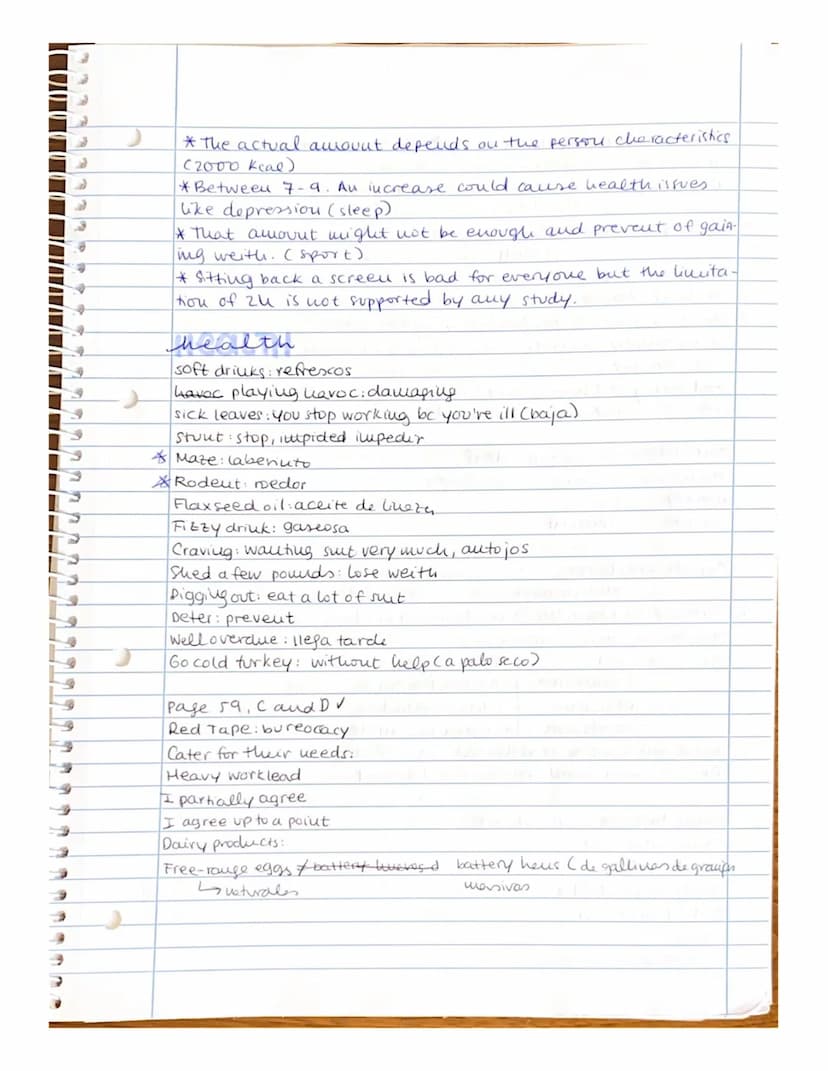 * The actual amount depends on the person characteristics
(2000 kcal)
* Between 7-9. An increase could cause health issues
like depression (sleep)
* That amount might not be enough and prevent of gain-
ing weith. (sport)
* Sitting back a screen is bad for everyone but the limita-
tion of 2h is not supported by any study.
health
soft drinks: refrescos
havoc playing havoc: damaging
sick leaves: you stop working bc you're ill (baja)
Stunt: stop, impided impedir
* Maze: laberinto
* Rodent: roedor
Flaxseed oil: aceite de linaza
Fizzy drink: gaseosa
Craving: wanting smt very much, antojos
Shed a few pounds: lose weith
Digging out: eat a lot of smt
Deter: prevent
Well overdue: llega tarde
Go cold turkey: without help (a palo seco)
Page 59, C and D ✓
Red Tape: bureocracy
Cater for their needs:
Heavy worklead
I partially agree
I agree up to a point
Dairy products:
Free-range eggs ≠ battery huevos d battery hens (de gallinas de granjas
↳ naturales masivas